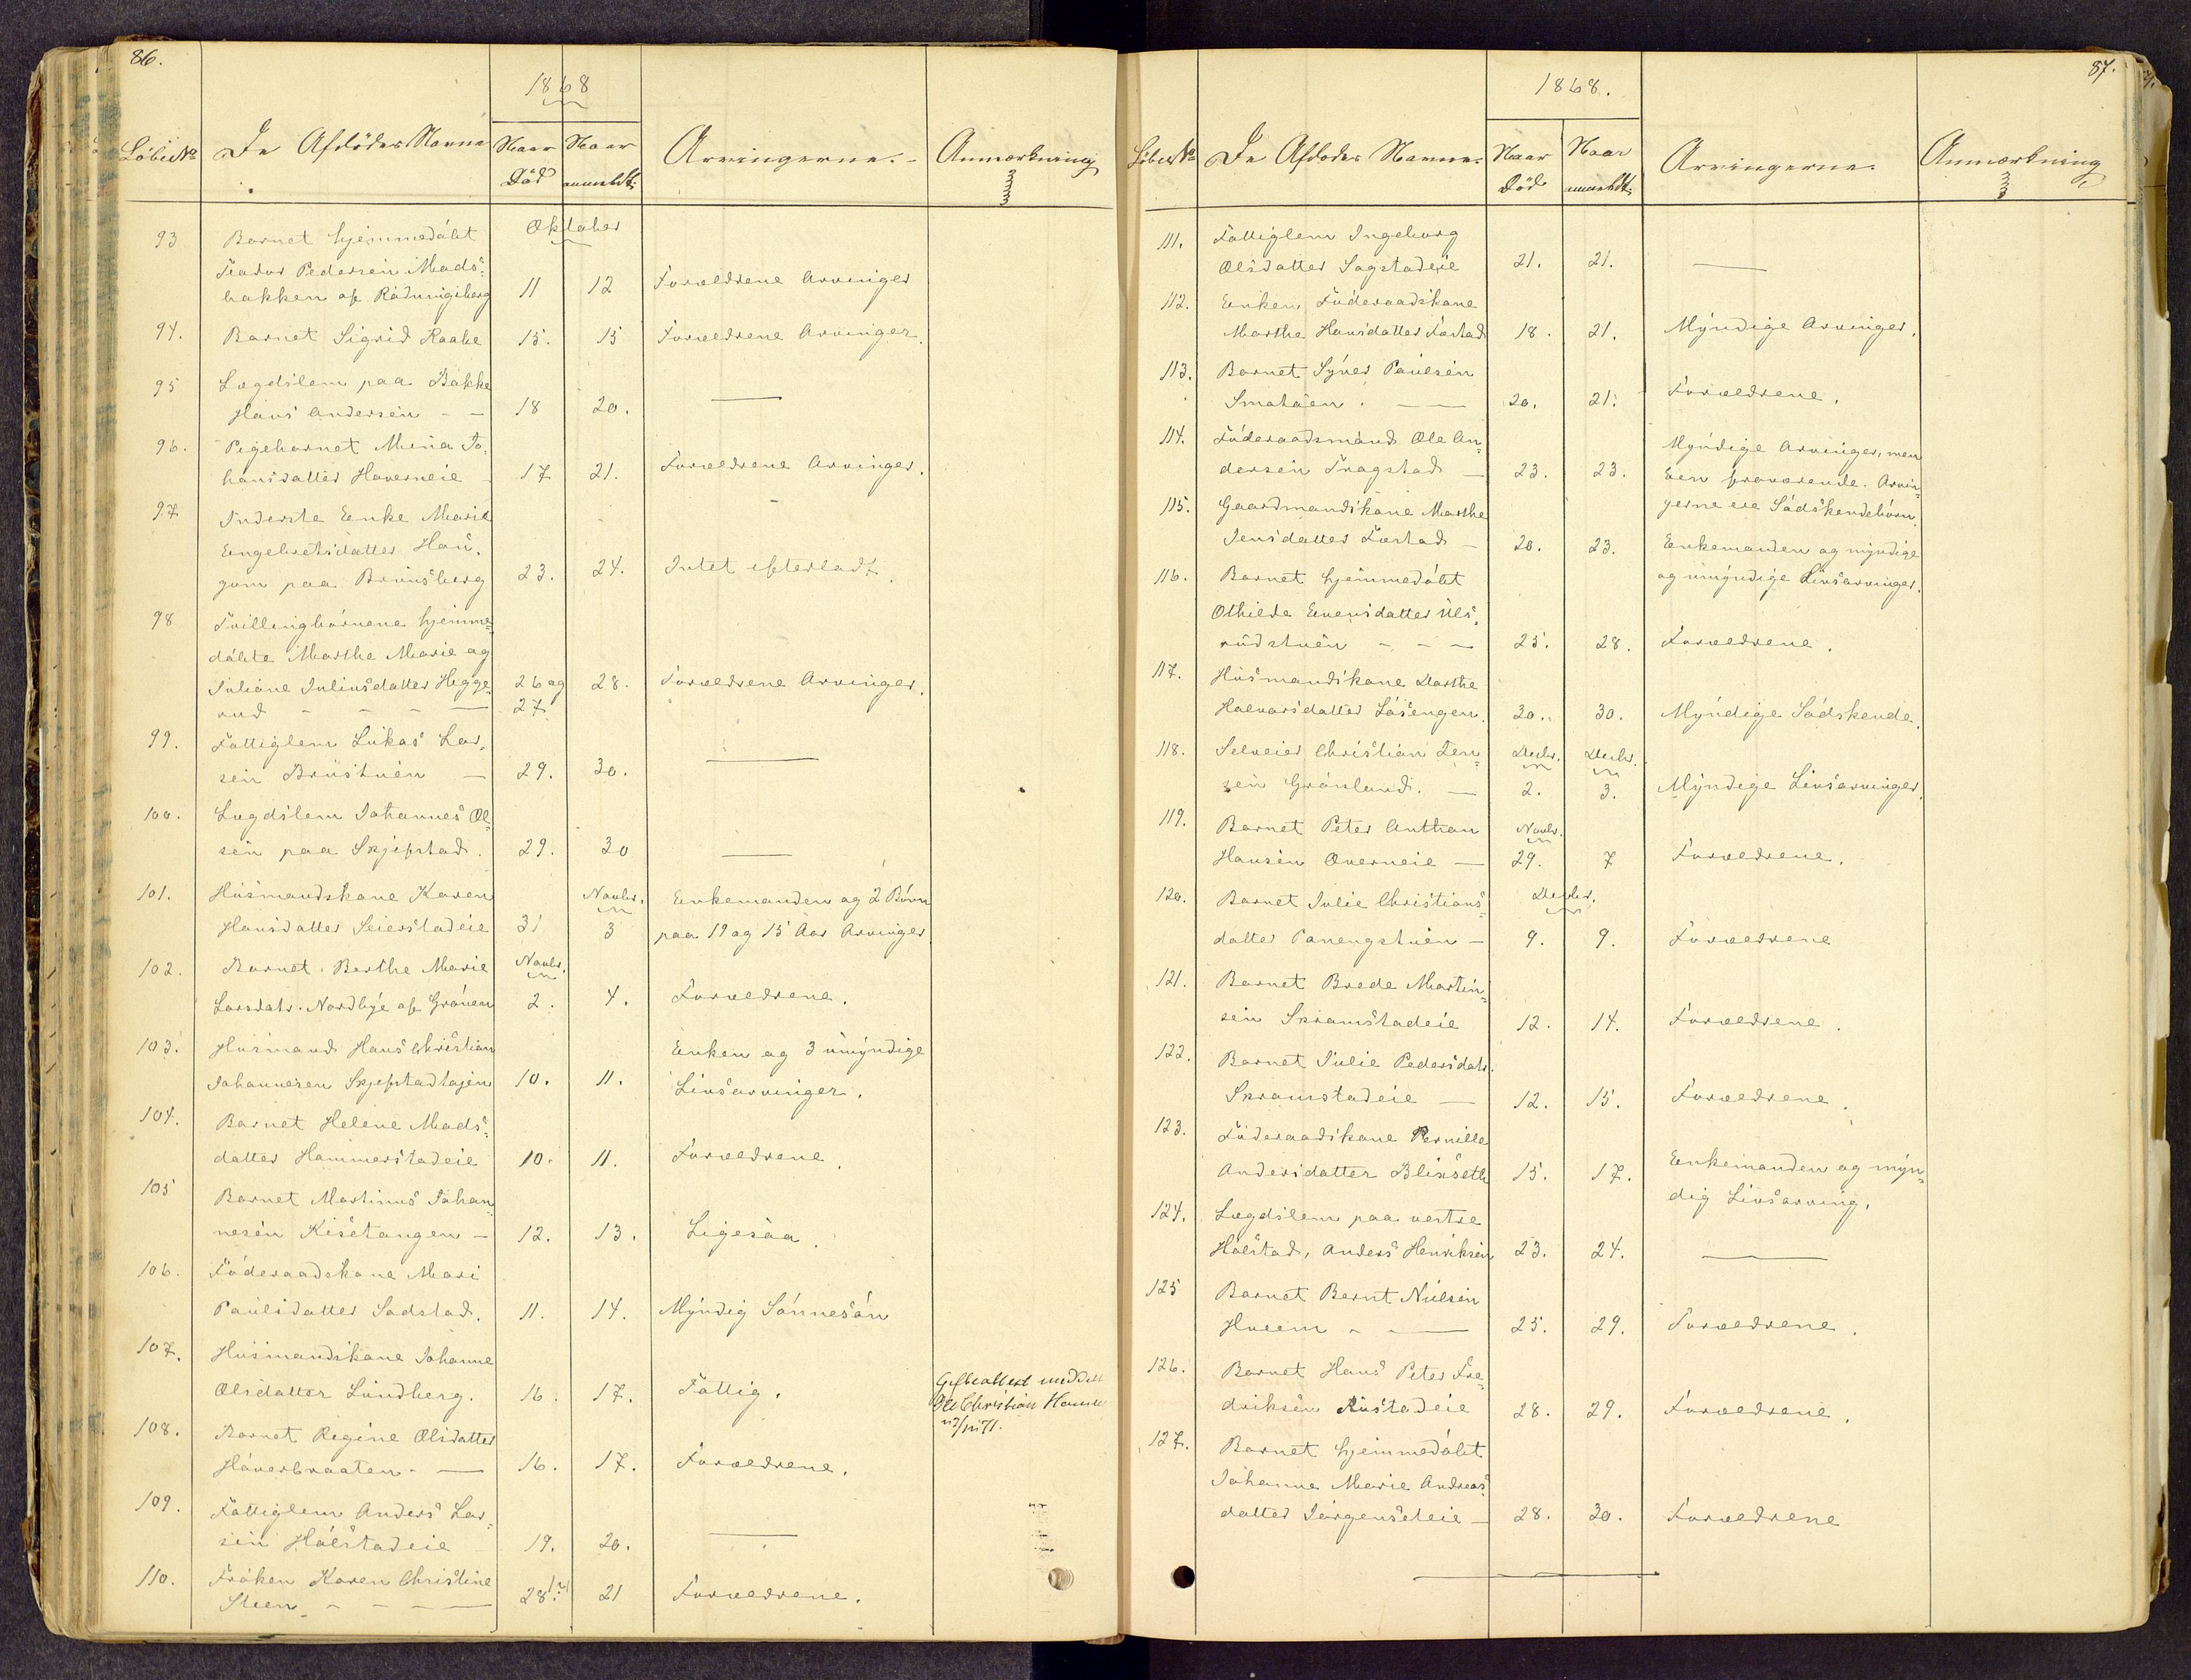 86.
1868
Löbe No De Afdödes Navne Naar Död Naar anmeldt. Arvingerne. Anmærkning
Oktober
93 Barnet hjemmedöbt
Teodor Pedersen Mads-
bakken af 11 12 Forældrene Arvinger
94. Barnet Sigrid Raabe 15. 15 Forældrene Arvinger.
95 Lægdslem paa Bakke
Hans Andersen - - 18 20. —
96. Pigebarnet Mina Jo-
hansdatter Haverneie 17 21. Forældrene Arvinger.
97 Inderste Enke Marie
Engebretsdatter Hau-
gom paa Brunsberg 23. 24. Intet efterladt.
98 Tvillingbörnene hjemme-
döbte Marthe Marie og
Juliane Juliusdatter Hegge- 26 og 28. Forældrene Arvinger.
rud - - - — 27
99. Fattiglem Lukas Lar-
sen Brustuen — 29. 30. —
100. Lægdslem Johannes Ol-
sen paa Skjefstad. 29. 30 —
101. Husmandskone Karen Novbr. Enkemanden og 2 Börn
Hansdatter Seierstadeie 31 3 paa 19 og 15 Aar Arvinger.
102. Barnet Berthe Marie Novbr.
Larsdatr. Nordbye af Grönen 2. 4. Forældrene.
103. Husmand Hans Christian Enken og 3 umyndige
Johannesen Skjefstadhagen 10. 11. Livsarvinger.
104. Barnet Helene Mads-
datter Hammerstadeie 10. 11. Forældrene.
105 Barnet Martinus Johan-
nesen Kisetangen - 12. 13. Ligesaa.
106. Föderaadskone Mari
Paulsdatter Sadstad. 11. 14. Myndig Sönnesön
107. Husmandskone Johanne
Olsdatter Lundberg. 16. 17. Fattig. Gifteattest meddelt
Ole Christian Hansen
108. Barnet Regine Olsdatter
Höverbraaten - — 16. 17. Forældrene.
109. Fattiglem Anders Lar-
sen Hoelstadeie 19. 20. —
110. Fröken Karen Christine
Steen - - - — 28(?) 21 Forældrene.
87.
1868.
Löbe No De Afdödes Navne. Naar Död Naar anmeldt. Arvingerne. Anmærkning
111. Fattiglem Ingeborg
Olsdatter Sagstadeie 21. 21. —
112. Enken Föderaadskone
Marthe Hansdatter Farstad 18. 21. Myndige Arvinger.
113. Barnet Syver Paulsen
Smahaen. — 20. 21. Forældrene.
114. Föderaadsmand Ole An- Myndige Arvinger, men
dersen Fragstad — 23. 23. Een fraværende. Arvin-
115. Gaardmandskone Marthe gerne ere Södskendebörn.
Jensdatter Farstad — 20. 23. Enkemanden og myndige
116. Barnet hjemmedöbt og umyndige Livsarvinger.
Othilde Evensdatter Uls-
rudstuen - - — 25. 28. Forældrene.
117. Husmandskone Dorthe
Halvorsdatter Låsengen. 30. 30. Myndige Södskende.
118. Selveier Christian Jen- Decbr. Decbr.
sen Grönland. — 2. 3. Myndige Livsarvinger.
119. Barnet Peter Anthon Novbr.
Hansen Overneie — 29. 7 Forældrene.
120. Barnet Julie Christians- Decbr.
datter Panengstuen — 9. 9. Forældrene
121. Barnet Brede Martin-
sen Skramstadeie 12. 14. Forældrene.
122. Barnet Julie Pedersdatr.
Skramstadeie — 12. 15. Forældrene.
123. Föderaadskone Pernille
Andersdatter Blikseth 15. 17. Enkemanden og myn-
dig Livsarving.
124. Lægdslem paa vestre
Hoelstad, Anders Henriksen 23. 24. —
125 Barnet Bernt Nielsen
Hveem - — 25. 29. Forældrene.
126. Barnet Hans Peter Fre-
driksen Rustadeie 28. 29. Forældrene.
127. Barnet hjemmedöbt
Johanne Marie Andreas-
datter Jörgenseteie — 28. 30. Forældrene